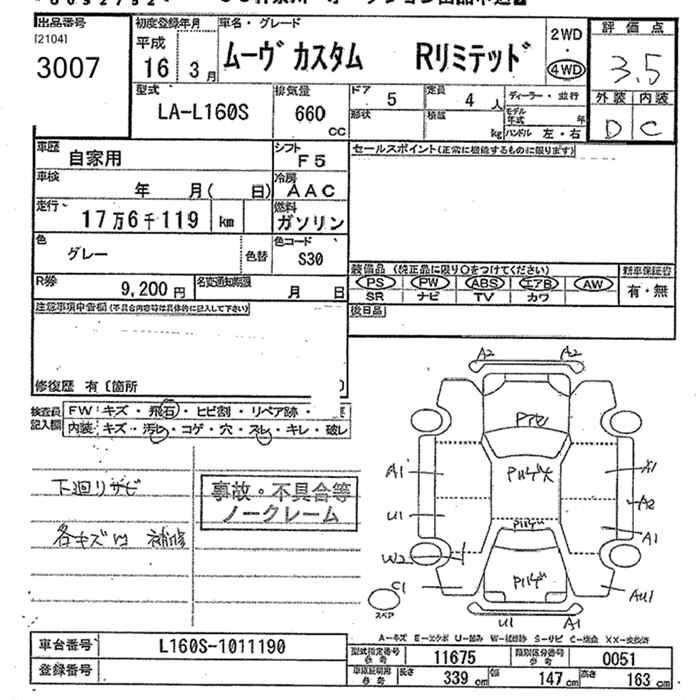 出品番号
[2104]
3007
初度登録年月
平成
16 3月
車名・グレード
ムーヴ カスタム Rリミテッド
2WD
・
4WD
評価点
3.5
外装 内装
D C
型式
LA-L160S
排気量
660
CC
ドア
5
定員
4 人
形状
積載
kg
ディーラー・並行
モデル年式 年
ハンドル 左・右
車歴
自家用
シフト
F5
車検
年 月( 日)
冷房
AAC
走行
17万6千119 km
燃料
ガソリン
色
グレー
色替
色コード
S30
R券
9,200円
名変通知期限
月 日
セールスポイント(正常に機能するものに限ります)
装備品 (純正品に限り○をつけてください)
PS PW ABS エアB AW
SR ナビ TV カワ
新車保証書
有・無
後日品
注意事項申告欄(不具合内容等は具体的に記入して下さい)
修復歴 有 〔箇所
検査員
記入欄
FW キズ・飛石・ヒビ割・リペア跡・
内装 キズ・汚レ・コゲ・穴・スレ・キレ・破レ
下廻りサビ
各キズ凹 補修
事故・不具合等
ノークレーム
A2 A2
A1
U1
W2
C1
A1
A2
A1
AU1
U1 A1
スペア
A-キズ E-エクボ U-凹み W-補修跡 S-サビ C-腐食 XX-交換済
車台番号
L160S-1011190
登録番号
型式指定番号
参考
11675
類別区分番号
参考
0051
車庫証明用
参考
長さ 339 cm
幅 147 cm
高さ 163 cm